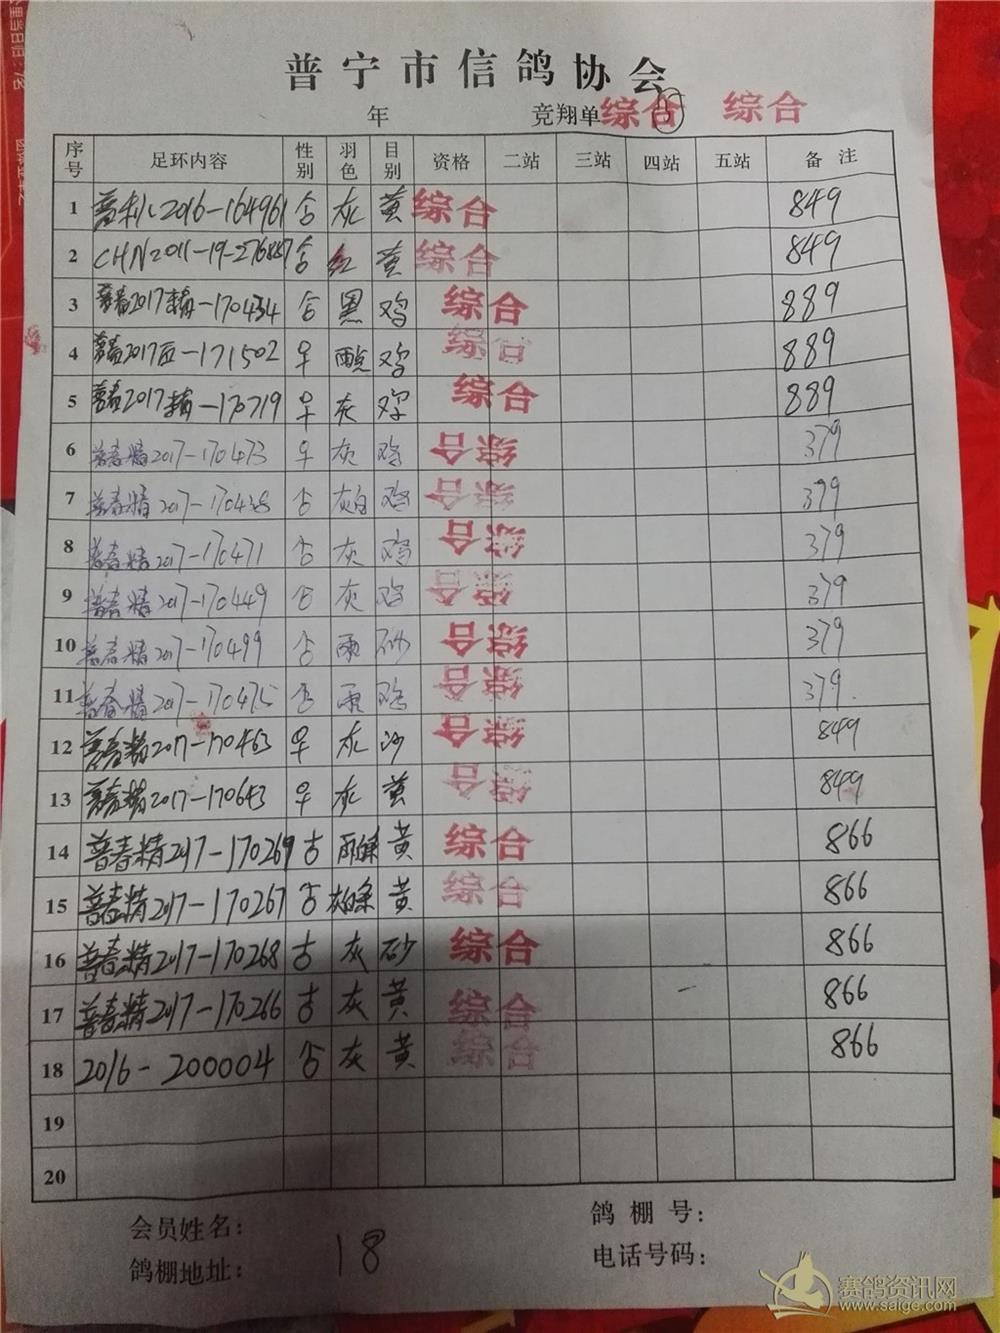 普宁市信鸽协会
年 竞翔单 综合 综合
序号 足环内容 性别 羽色 目别 资格 二站 三站 四站 五站 备注
1 2016-164961 灰 黄 综合 849
2 CHN2011-19-276887 红 黄 综合 849
3 普春2017精-170434 黑 鸡 综合 889
4 普春2017-171502 鸡 综合 889
5 普春2017精-170719 灰 综合 889
6 普春精2017-170473 灰 鸡 综合 379
7 普春精2017-170438 灰白 鸡 综合 379
8 普春精2017-170471 灰 鸡 综合 379
9 普春精2017-170449 灰 鸡 综合 379
10 普春精2017-170499 雨 砂 综合 379
11 普春精2017-170475 雨 鸡 综合 379.
12 普春精2017-170463 灰 沙 综合 849
13 普春精2017-170643 灰 黄 综合 849
14 普春精2017-170269 黄 综合 866
15 普春精2017-170267 黄 综合 866
16 普春精2017-170268 灰 砂 综合 866
17 普春精2017-170266 灰 黄 综合 866
18 2016-200004 灰 黄 综合 866
19
20
会员姓名： 鸽棚号：
鸽棚地址： 18 电话号码：
赛鸽资讯网
www.saige.com